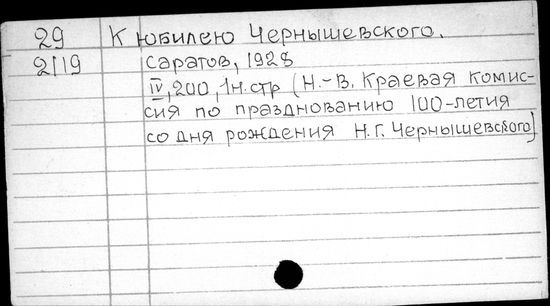 29 К юбилею Чернышевского.
2119 Саратов, 1928
IV, 200, 1н.стр (Н.-В. Краевая комис-
сия по празднованию 100-летия
со дня рождения Н.Г. Чернышевского)